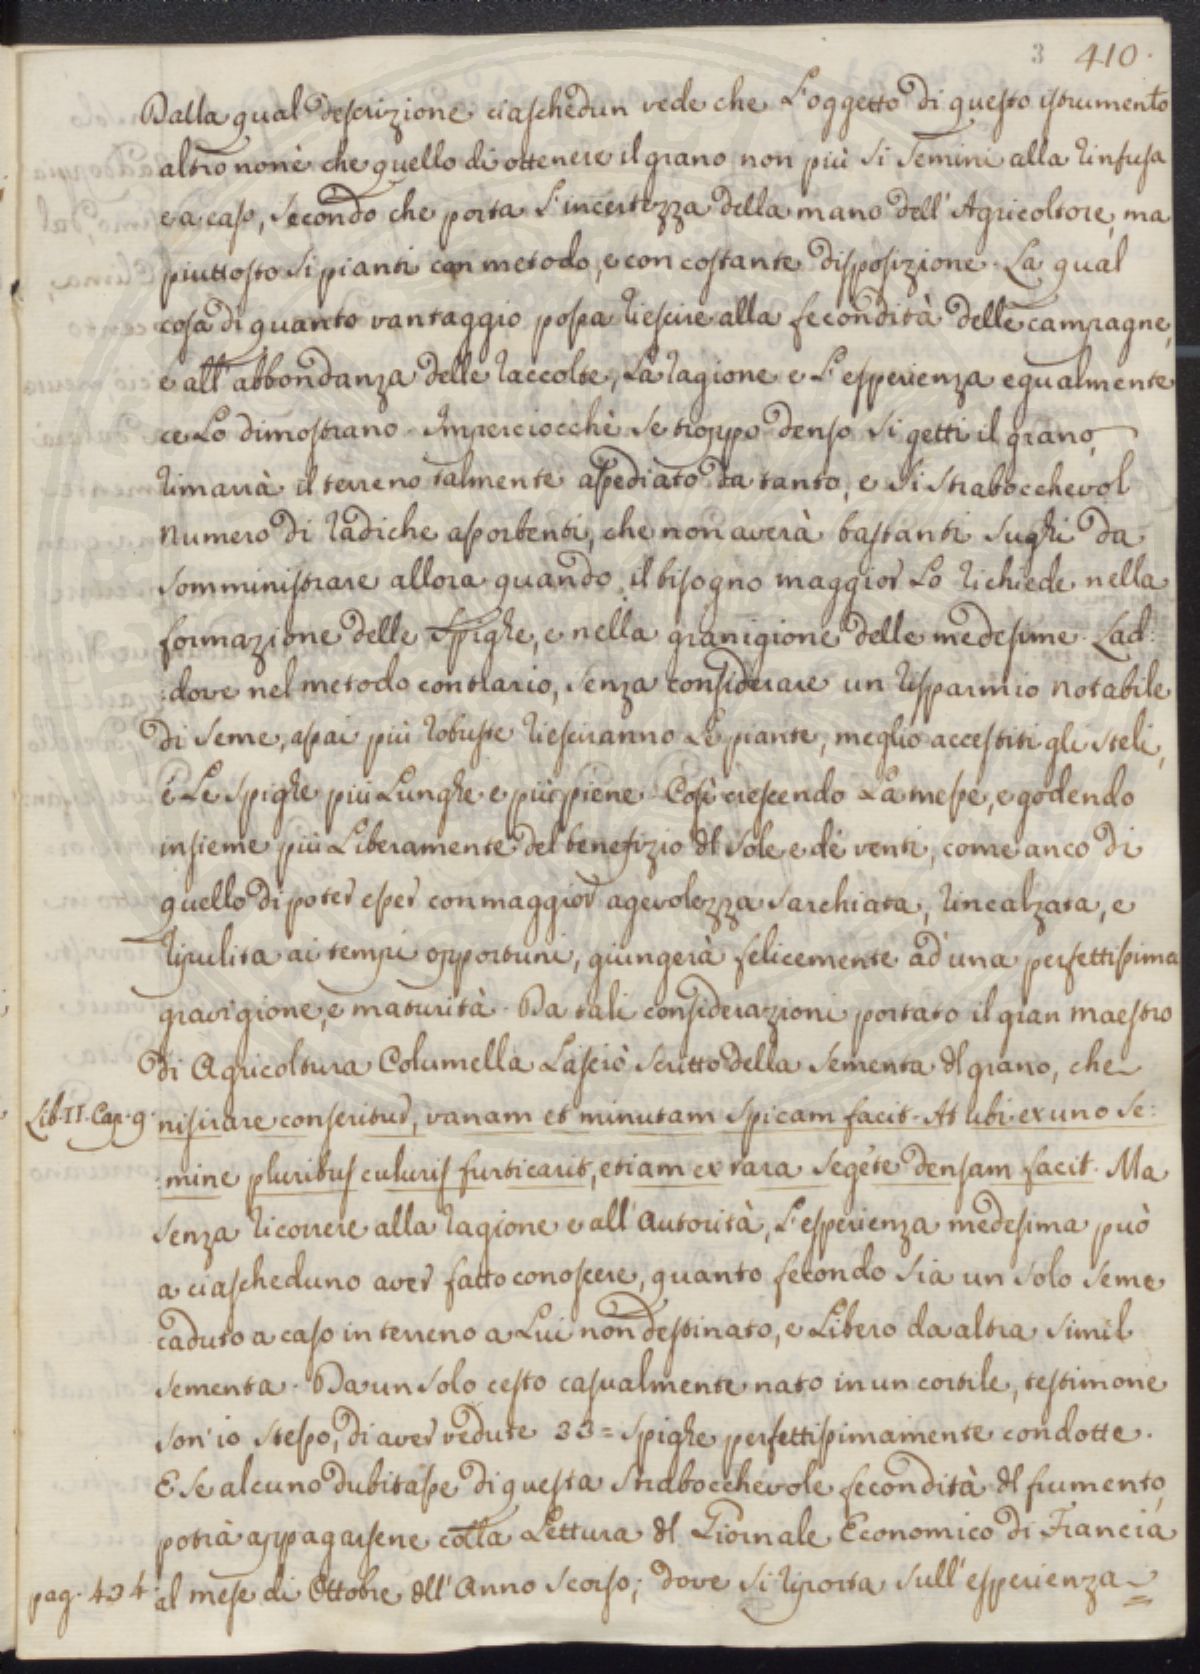 3 410.
Dalla qual descrizione ciaschedun vede che l'oggetto di questo istrumento
altro non è che quello di ottenere il grano non più si semini alla rinfusa
e a caso, secondo che porta l'incertezza della mano dell' Agricoltore, ma
piuttosto si pianti con metodo, e con costante disposizione. La qual
cosa di quanto vantaggio possa riescire alla fecondità delle campagne,
e all' abbondanza delle raccolte, la ragione e l'esperienza egualmente
ce lo dimostrano. Imperciocchè se troppo denso si getti il grano,
rimarrà il terreno talmente assediato da tanto, e sì strabocchevol
numero di radiche assorbenti, che non averà bastanti sughi da
somministrare allora quando il bisogno maggior lo richiede nella
formazione delle spighe, e nella granigione delle medesime. Lad:
:dove nel metodo contrario, senza considerare un risparmio notabile
di seme, assai più robuste riesciranno le piante, meglio accestiti gli steli,
e le spighe più lunghe e più piene. Così crescendo la messe, e godendo
insieme più liberamente del benefizio dl sole e de' venti, come anco di
quello di poter esser con maggior agevolezza sarchiata, rincalzata, e
ripulita ai tempi opportuni, giungerà felicemente ad una perfettissima
granigione, e maturità. Da tali considerazioni portato il gran maestro
di Agricoltura Columella lasciò scritto della sementa dl grano, che
Lib. II. Cap. 9. nisi rare conseritur, vanam et minutam spicam facit. At ubi ex uno se:
:mine pluribus culmis furticarit, etiam ex rara segete densam facit. Ma
senza ricorrere alla ragione e all' autorità, l'esperienza medesima può
a ciascheduno aver fatto conoscere, quanto fecondo sia un solo seme
caduto a caso in terreno a lui non destinato, e libero da altra simil
sementa. Da un solo cesto casualmente nato in un cortile, testimone
son' io stesso, di aver vedute 33= spighe perfettissimamente condotte.
E se alcuno dubitasse di questa strabocchevole fecondità dl frumento,
potrà appagarsene colla lettura dl Giornale Economico di Francia
pag. 434 al mese di Ottobre dll' Anno scorso; dove si riporta sull' esperienza